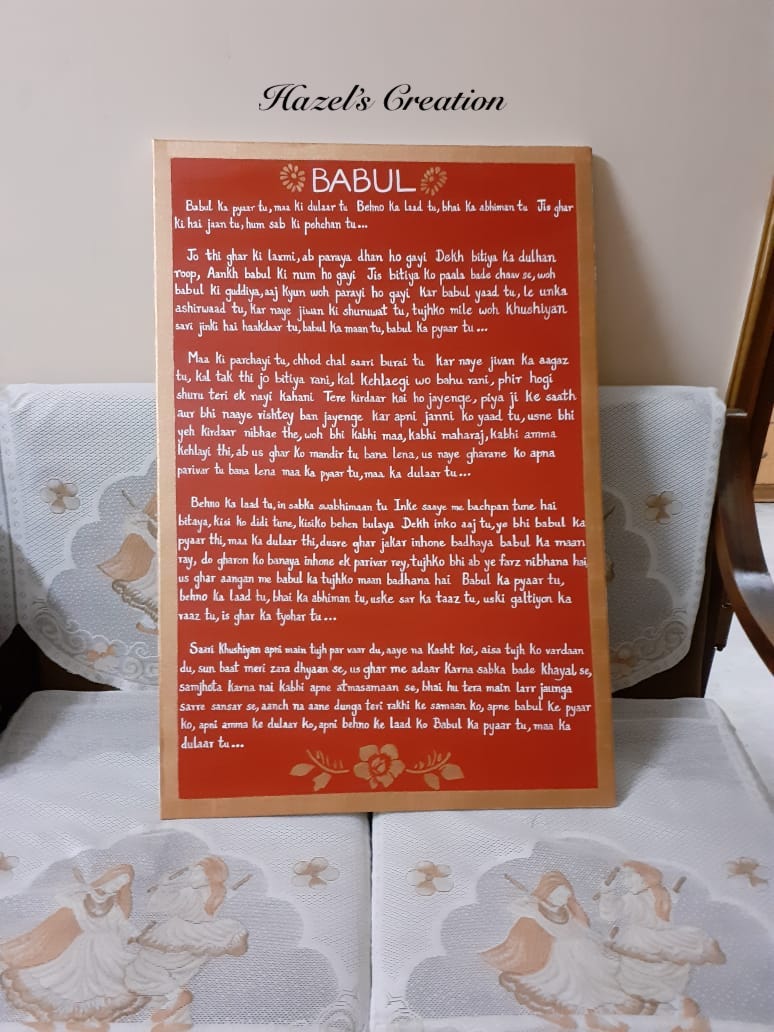 Hazel's Creation
BABUL
Babul ka pyaar tu, maa ki dulaar tu Behno ka laad tu, bhai ka abhiman tu Jis ghar
ki hai jaan tu, hum sab ki pehchan tu...
Jo thi ghar ki laxmi, ab paraya dhan ho gayi Dekh bitiya ka dulhan
roop, Aankh babul ki num ho gayi Jis bitiya ko paala bade chaav se, woh
babul ki guddiya, aaj kyun woh parayi ho gayi Kar babul yaad tu, le unka
ashirwaad tu, kar naye jiwan ki shuruwat tu, tujhko mile woh khushiyan
sari jinki hai haakdaar tu, babul ka maan tu, babul ka pyaar tu...
Maa ki parchayi tu, chhod chal saari burai tu Kar naye jivan ka aagaz
tu, kal tak thi jo bitiya rani, kal kehlaegi wo bahu rani, phir hogi
shuru teri ek nayi kahani Tere kirdaar kai ho jayenge, piya ji ke saath
aur bhi naaye rishtey ban jayenge kar apni janni ko yaad tu, usne bhi
yeh kirdaar nibhae the, woh bhi kabhi maa, kabhi maharaj, kabhi amma
kehlayi thi, ab us ghar ko mandir tu bana lena, us naye gharane ko apna
parivar tu bana lena maa ka pyaar tu, maa ka dulaar tu...
Behno ka laad tu, in sabka swabhimaan tu Inke saaye me bachpan tune hai
bitaya, kisi ko didi tune, kisiko behen bulaya Dekh inko aaj tu, ye bhi babul ka
pyaar thi, maa ka dulaar thi, dusre ghar jakar inhone badhaya babul ka maan
ray, do gharon ko banaya inhone ek parivar rey, tujhko bhi ab ye farz nibhana hai
us ghar aangan me babul ka tujhko maan badhana hai Babul ka pyaar tu,
behno ka laad tu, bhai ka abhiman tu, uske sar ka taaz tu, uski galtiyon ka
raaz tu, is ghar ka tyohar tu...
Saari khushiyan apni main tujh par vaar du, aaye na Kasht koi, aisa tujh ko vardaan
du, sun baat meri zara dhyaan se, us ghar me adaar karna sabka bade khayal se,
samjhota karna nai kabhi apne atmasamaan se, bhai hu tera main larr jaunga
sarre sansar se, aanch na aane dunga teri rakhi ke samaan ko, apne babul ke pyaar
ko, apni amma ke dulaar ko, apni behno ke laad ko Babul ka pyaar tu, maa ka
dulaar tu...